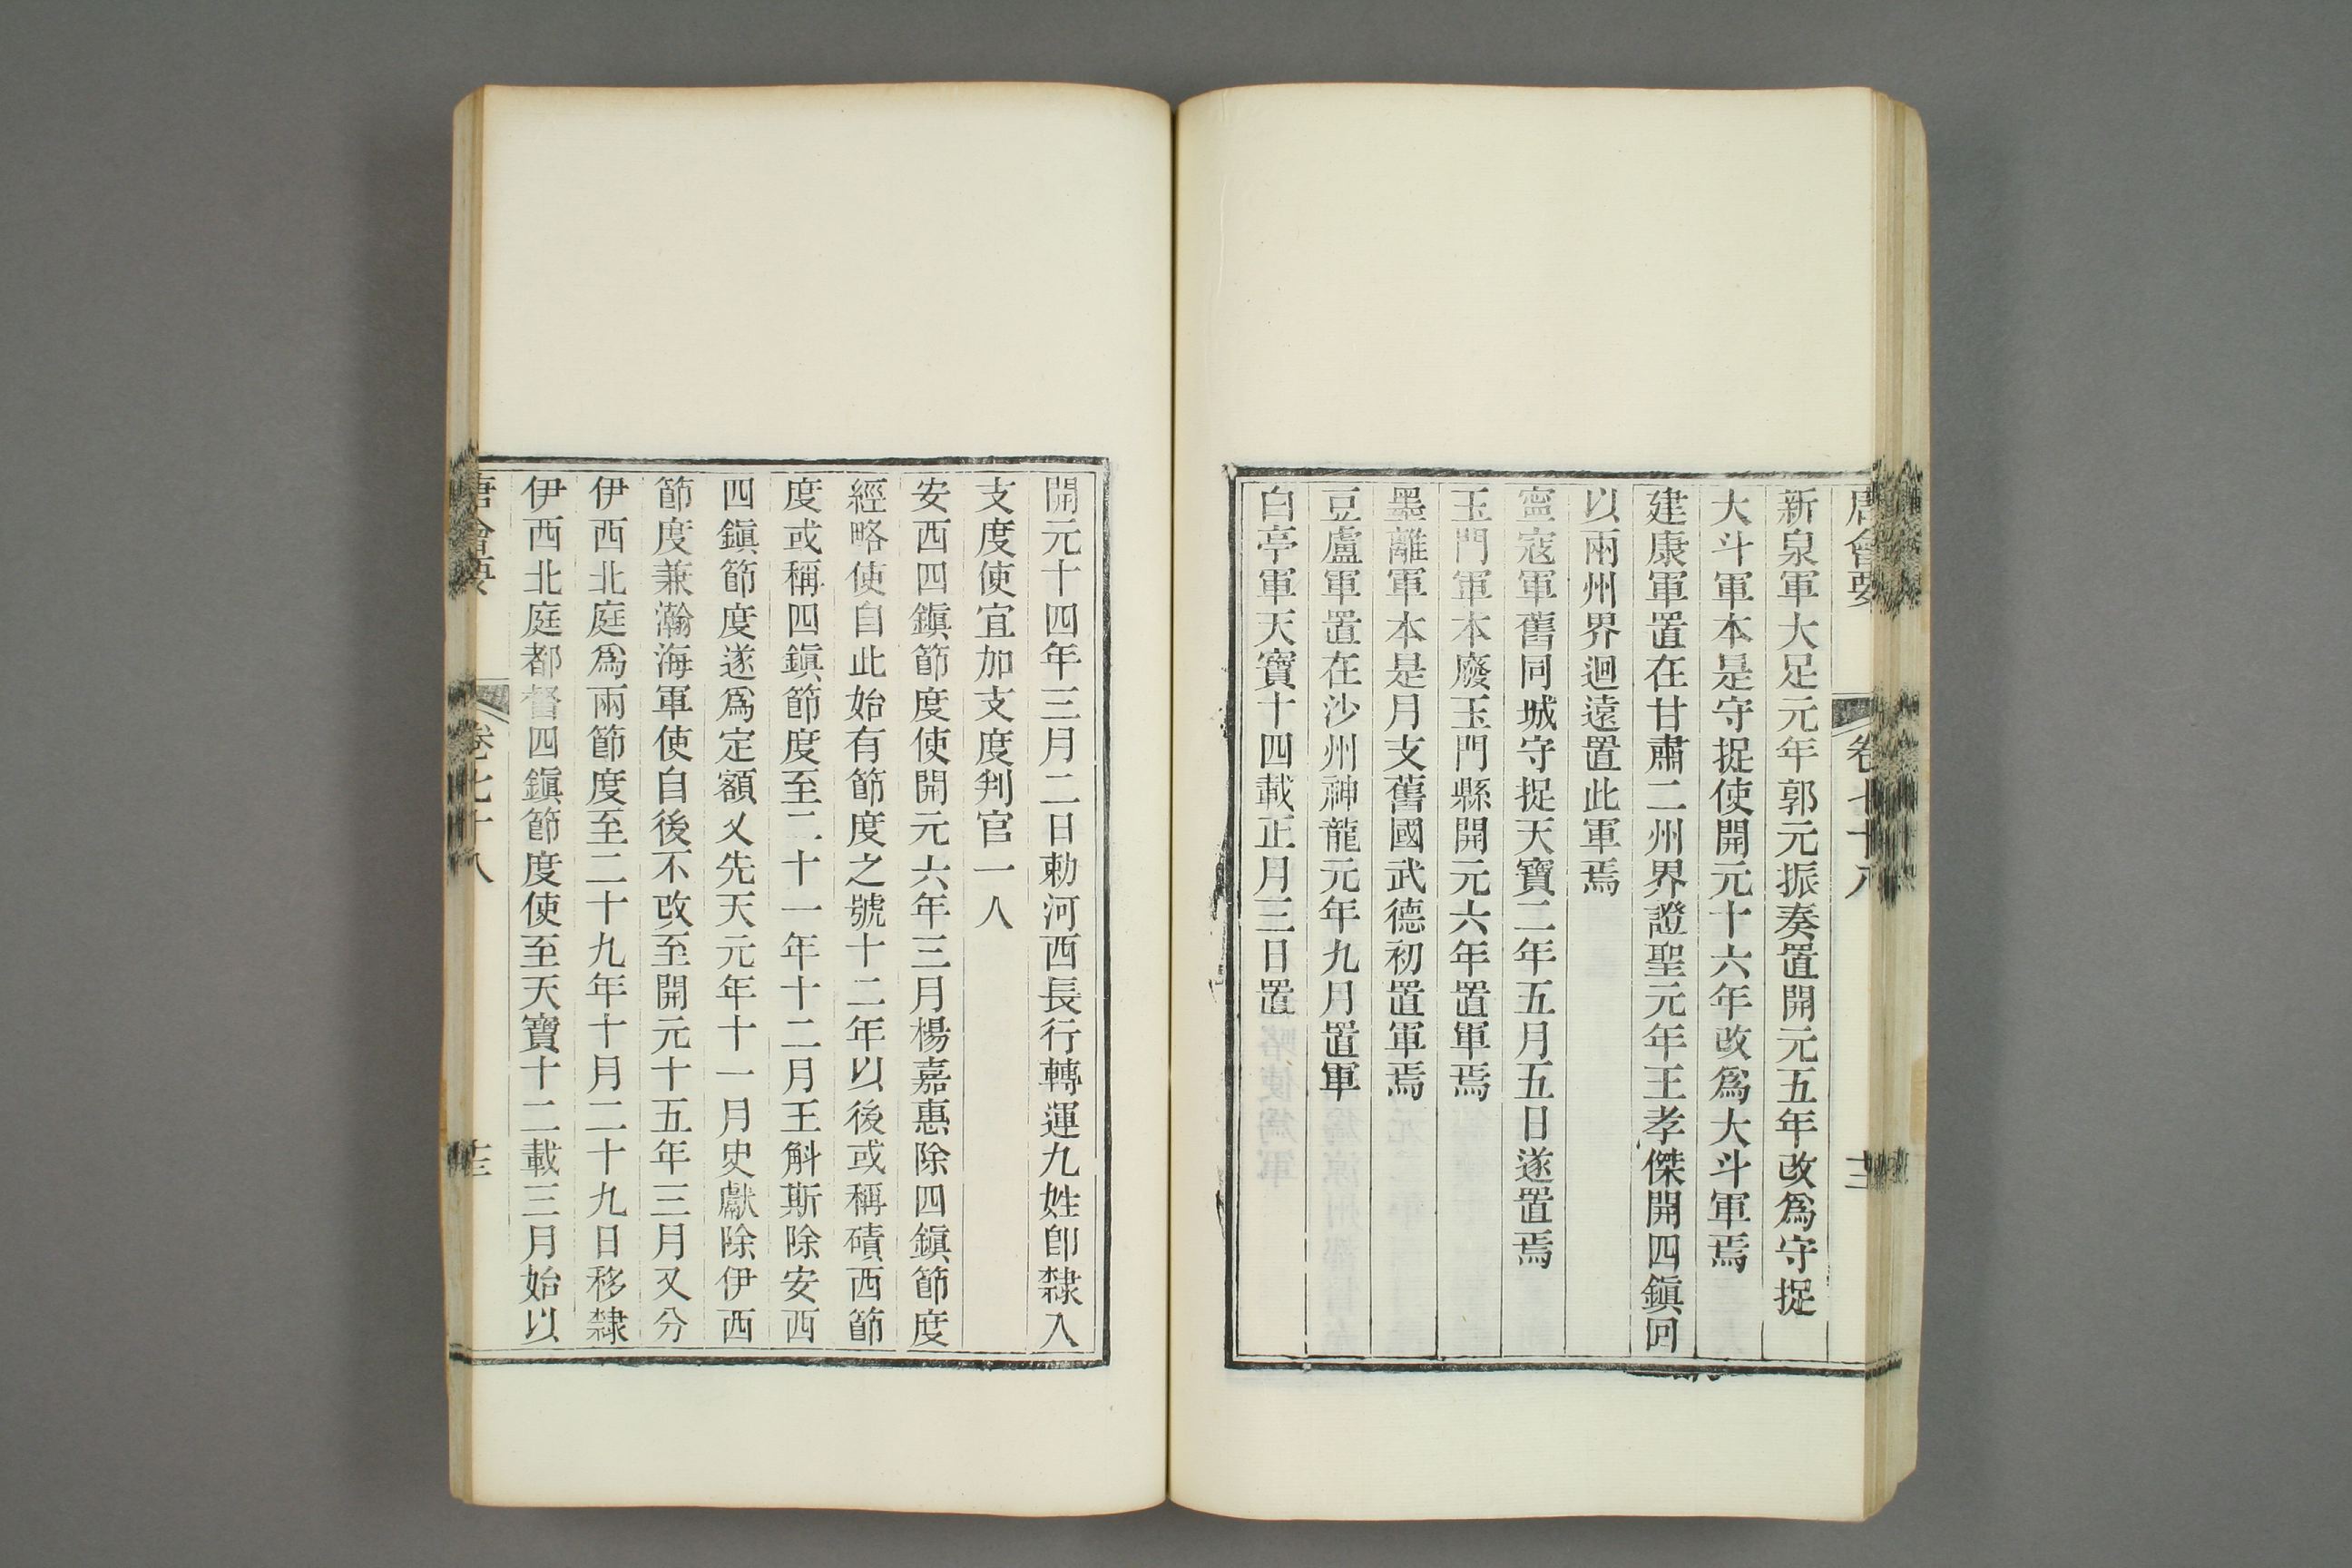 唐會要 卷七十八 十二
新泉軍大足元年郭元振奏置開元五年改爲守捉
大斗軍本是守捉使開元十六年改爲大斗軍焉
建康軍置在甘肅二州界證聖元年王孝傑開四鎭回
以兩州界迴遠置此軍焉
寧寇軍舊同城守捉天寶二年五月五日遂置焉
玉門軍本廢玉門縣開元六年置軍焉
墨離軍本是月支舊國武德初置軍焉
豆盧軍置在沙州神龍元年九月置軍
白亭軍天寶十四載正月三日置
開元十四年三月二日勅河西長行轉運九姓卽隸入
支度使宜加支度判官一人
安西四鎭節度使開元六年三月楊嘉惠除四鎭節度
經略使自此始有節度之號十二年以後或稱磧西節
度或稱四鎭節度至二十一年十二月王斛斯除安西
四鎭節度遂爲定額又先天元年十一月史獻除伊西
節度兼瀚海軍使自後不改至開元十五年三月又分
伊西北庭爲兩節度至二十九年十月二十九日移隸
伊西北庭都督四鎭節度使至天寶十二載三月始以
唐會要 卷七十八 十三